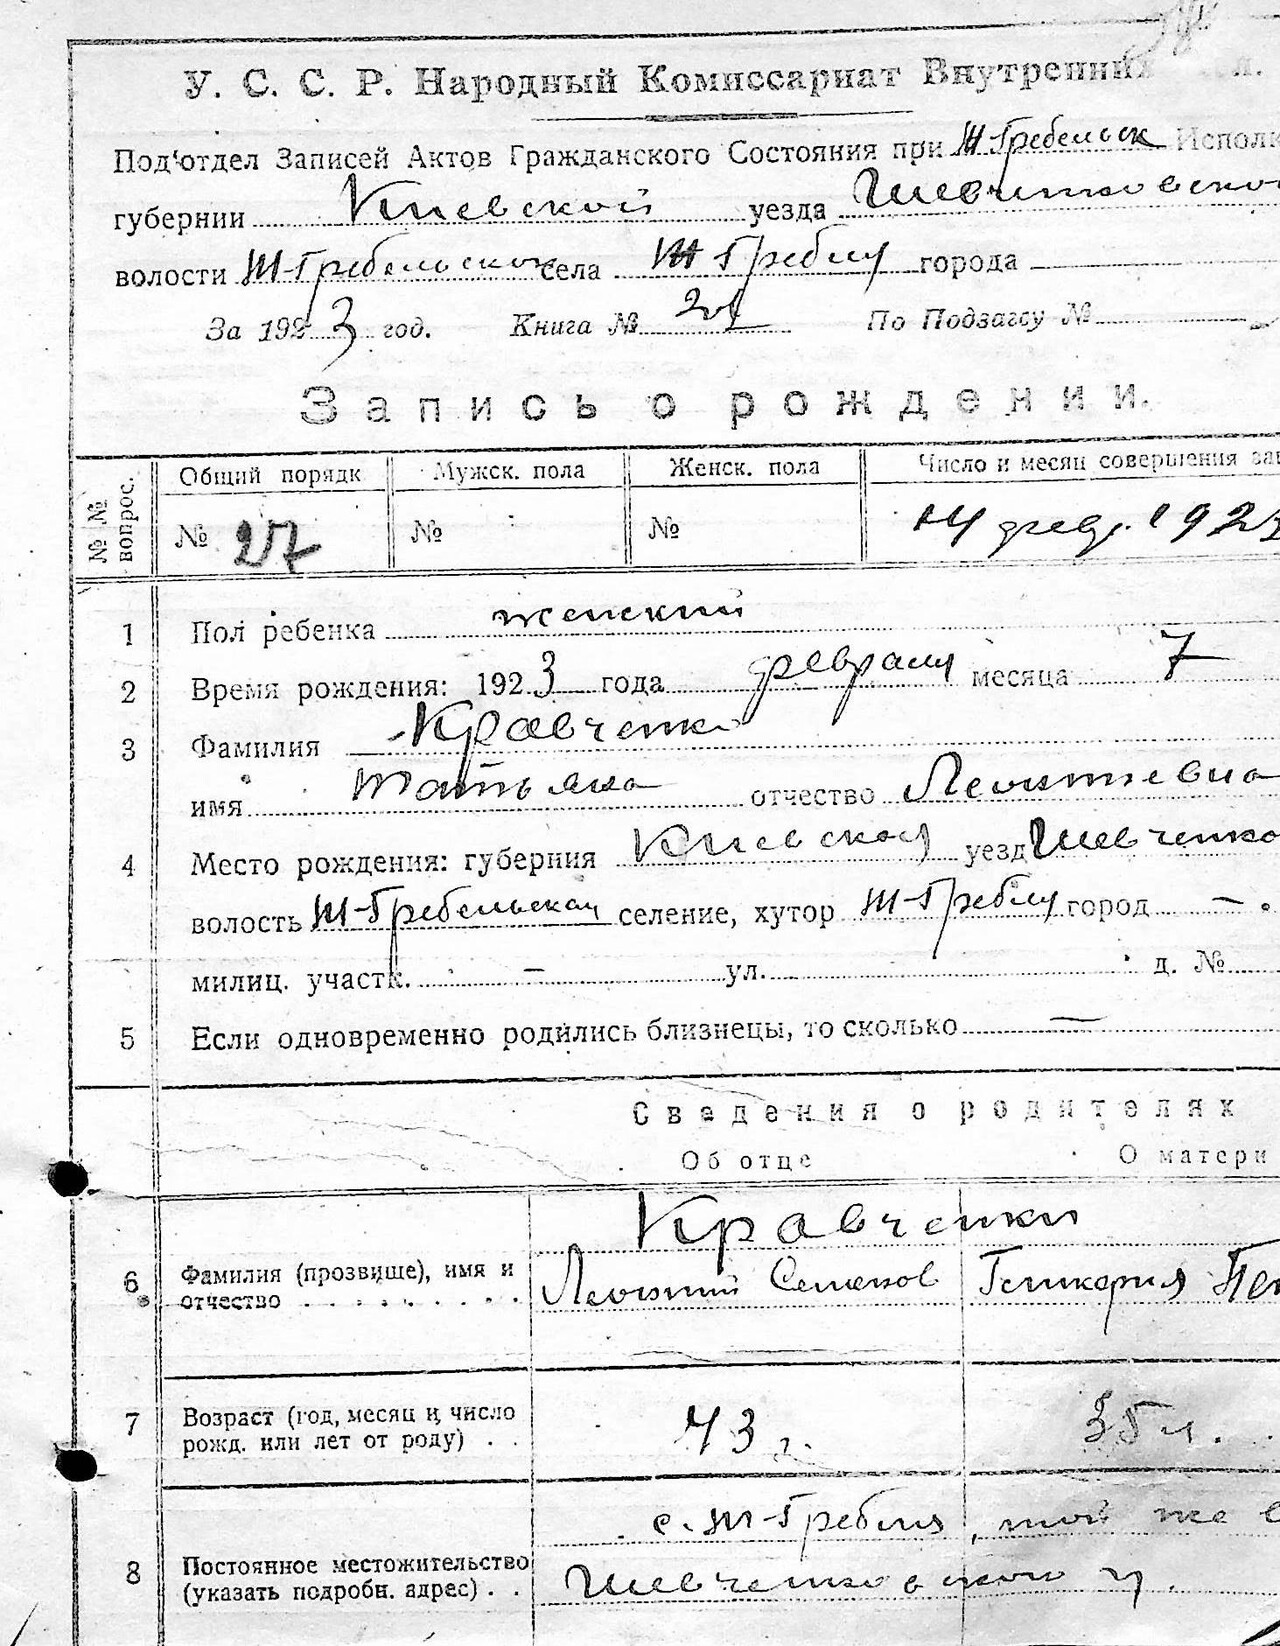 У. С. С. Р. Народный Комиссариат Внутренних
Под'отдел Записей Актов Гражданского Состояния при Ж-Гребельск Исполк
губернии Киевской уезда Шевченковской
волости Ж-Гребельской села Ж-Гребля города —
За 1923 год. Книга № По Подзагсу № —
Запись о рождении.
№ № вопрос. Общий порядк Мужск. пола Женск. пола Число и месяц совершения зап
№ 27 № № 14 февр. 1923
1 Пол ребенка женский
2 Время рождения: 1923 года февраля месяца 7
3 Фамилия Кравченко
имя Татьяна отчество Леонтиевна
4 Место рождения: губерния Киевская уезд Шевченко
волость Ж-Гребельская селение, хутор Ж-Гребля город — .
милиц. участк. — ул. д. №
5 Если одновременно родились близнецы, то сколько —
Сведения о родителях
Об отце О матери
Кравченки
6 Фамилия (прозвище), имя и Леонтий Семенов Гликерия
отчество
7 Возраст (год, месяц и число 43 г. 35 л.
рожд. или лет от роду)
с. Ж-Гребля, той же
8 Постоянное местожительство Шевченковского у.
(указать подробн. адрес)